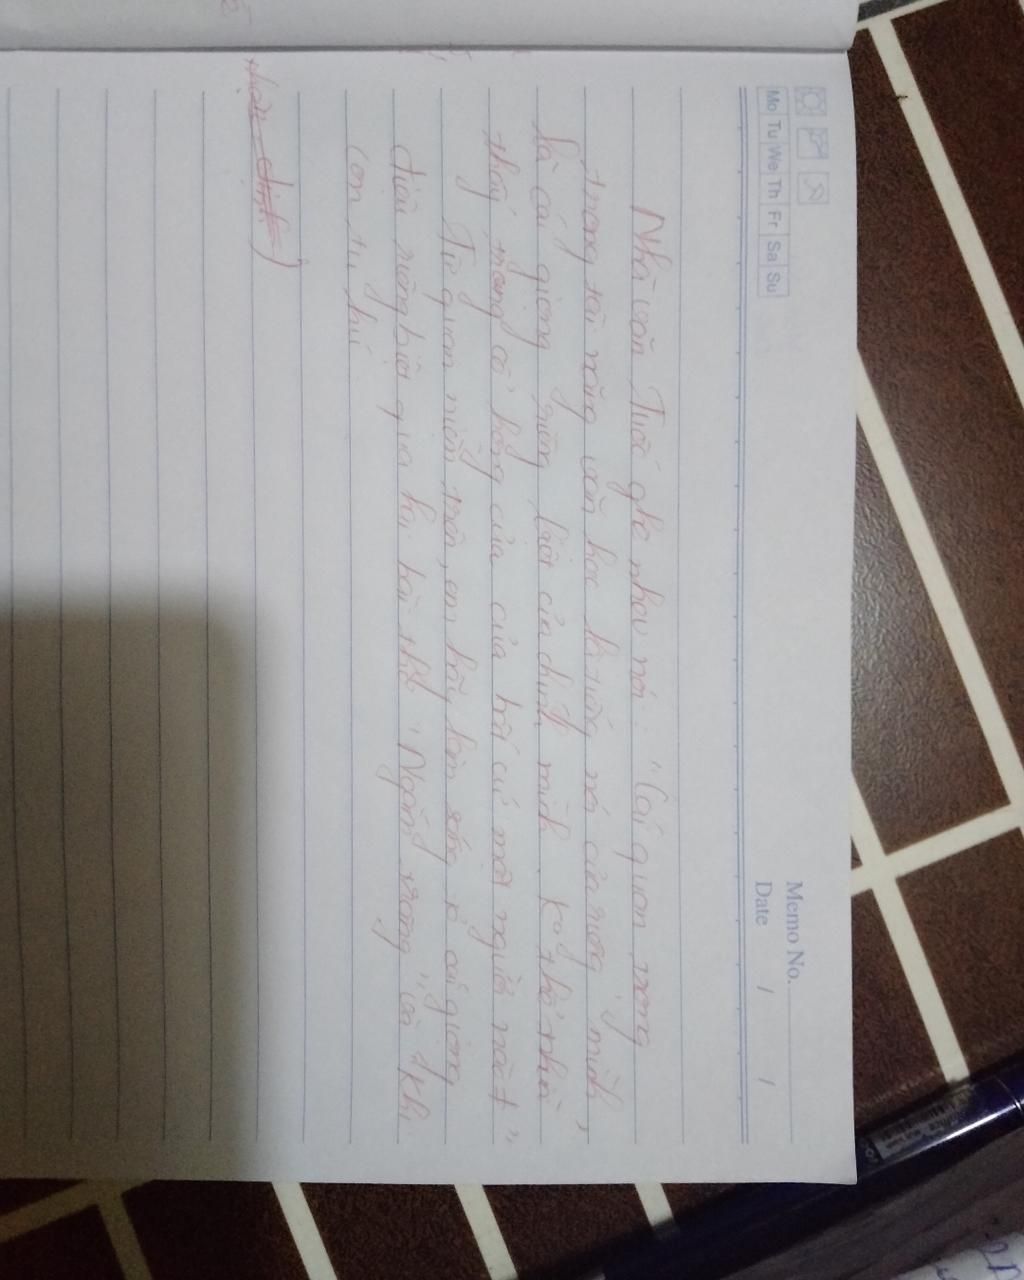 Memo No.
Mo Tu We Th Fr Sa Su
Date / /
Nhà văn Tuốc ghe nhev nói: "Cái quan trọng
trong tài năng văn học là tiếng nói của riêng mình,
là cái giọng riêng biệt của chính mình ko thể tìm
thấy trong cổ họng của của bất cứ một người nào +"
Từ quan niệm trên, em hãy làm sáng rõ cái giọng
điệu riêng biệt qua hai bài thơ "Ngắm trăng" và "Khi
con tu hú